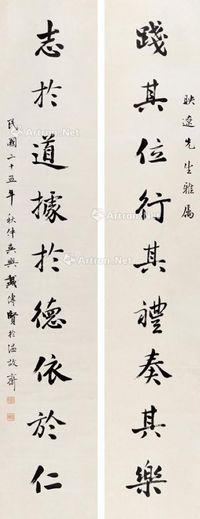 映遼先生雅屬
踐其位行其禮奏其樂
志於道據於德依於仁
民國二十五年秋仲吳興戴傳賢於溫故齋